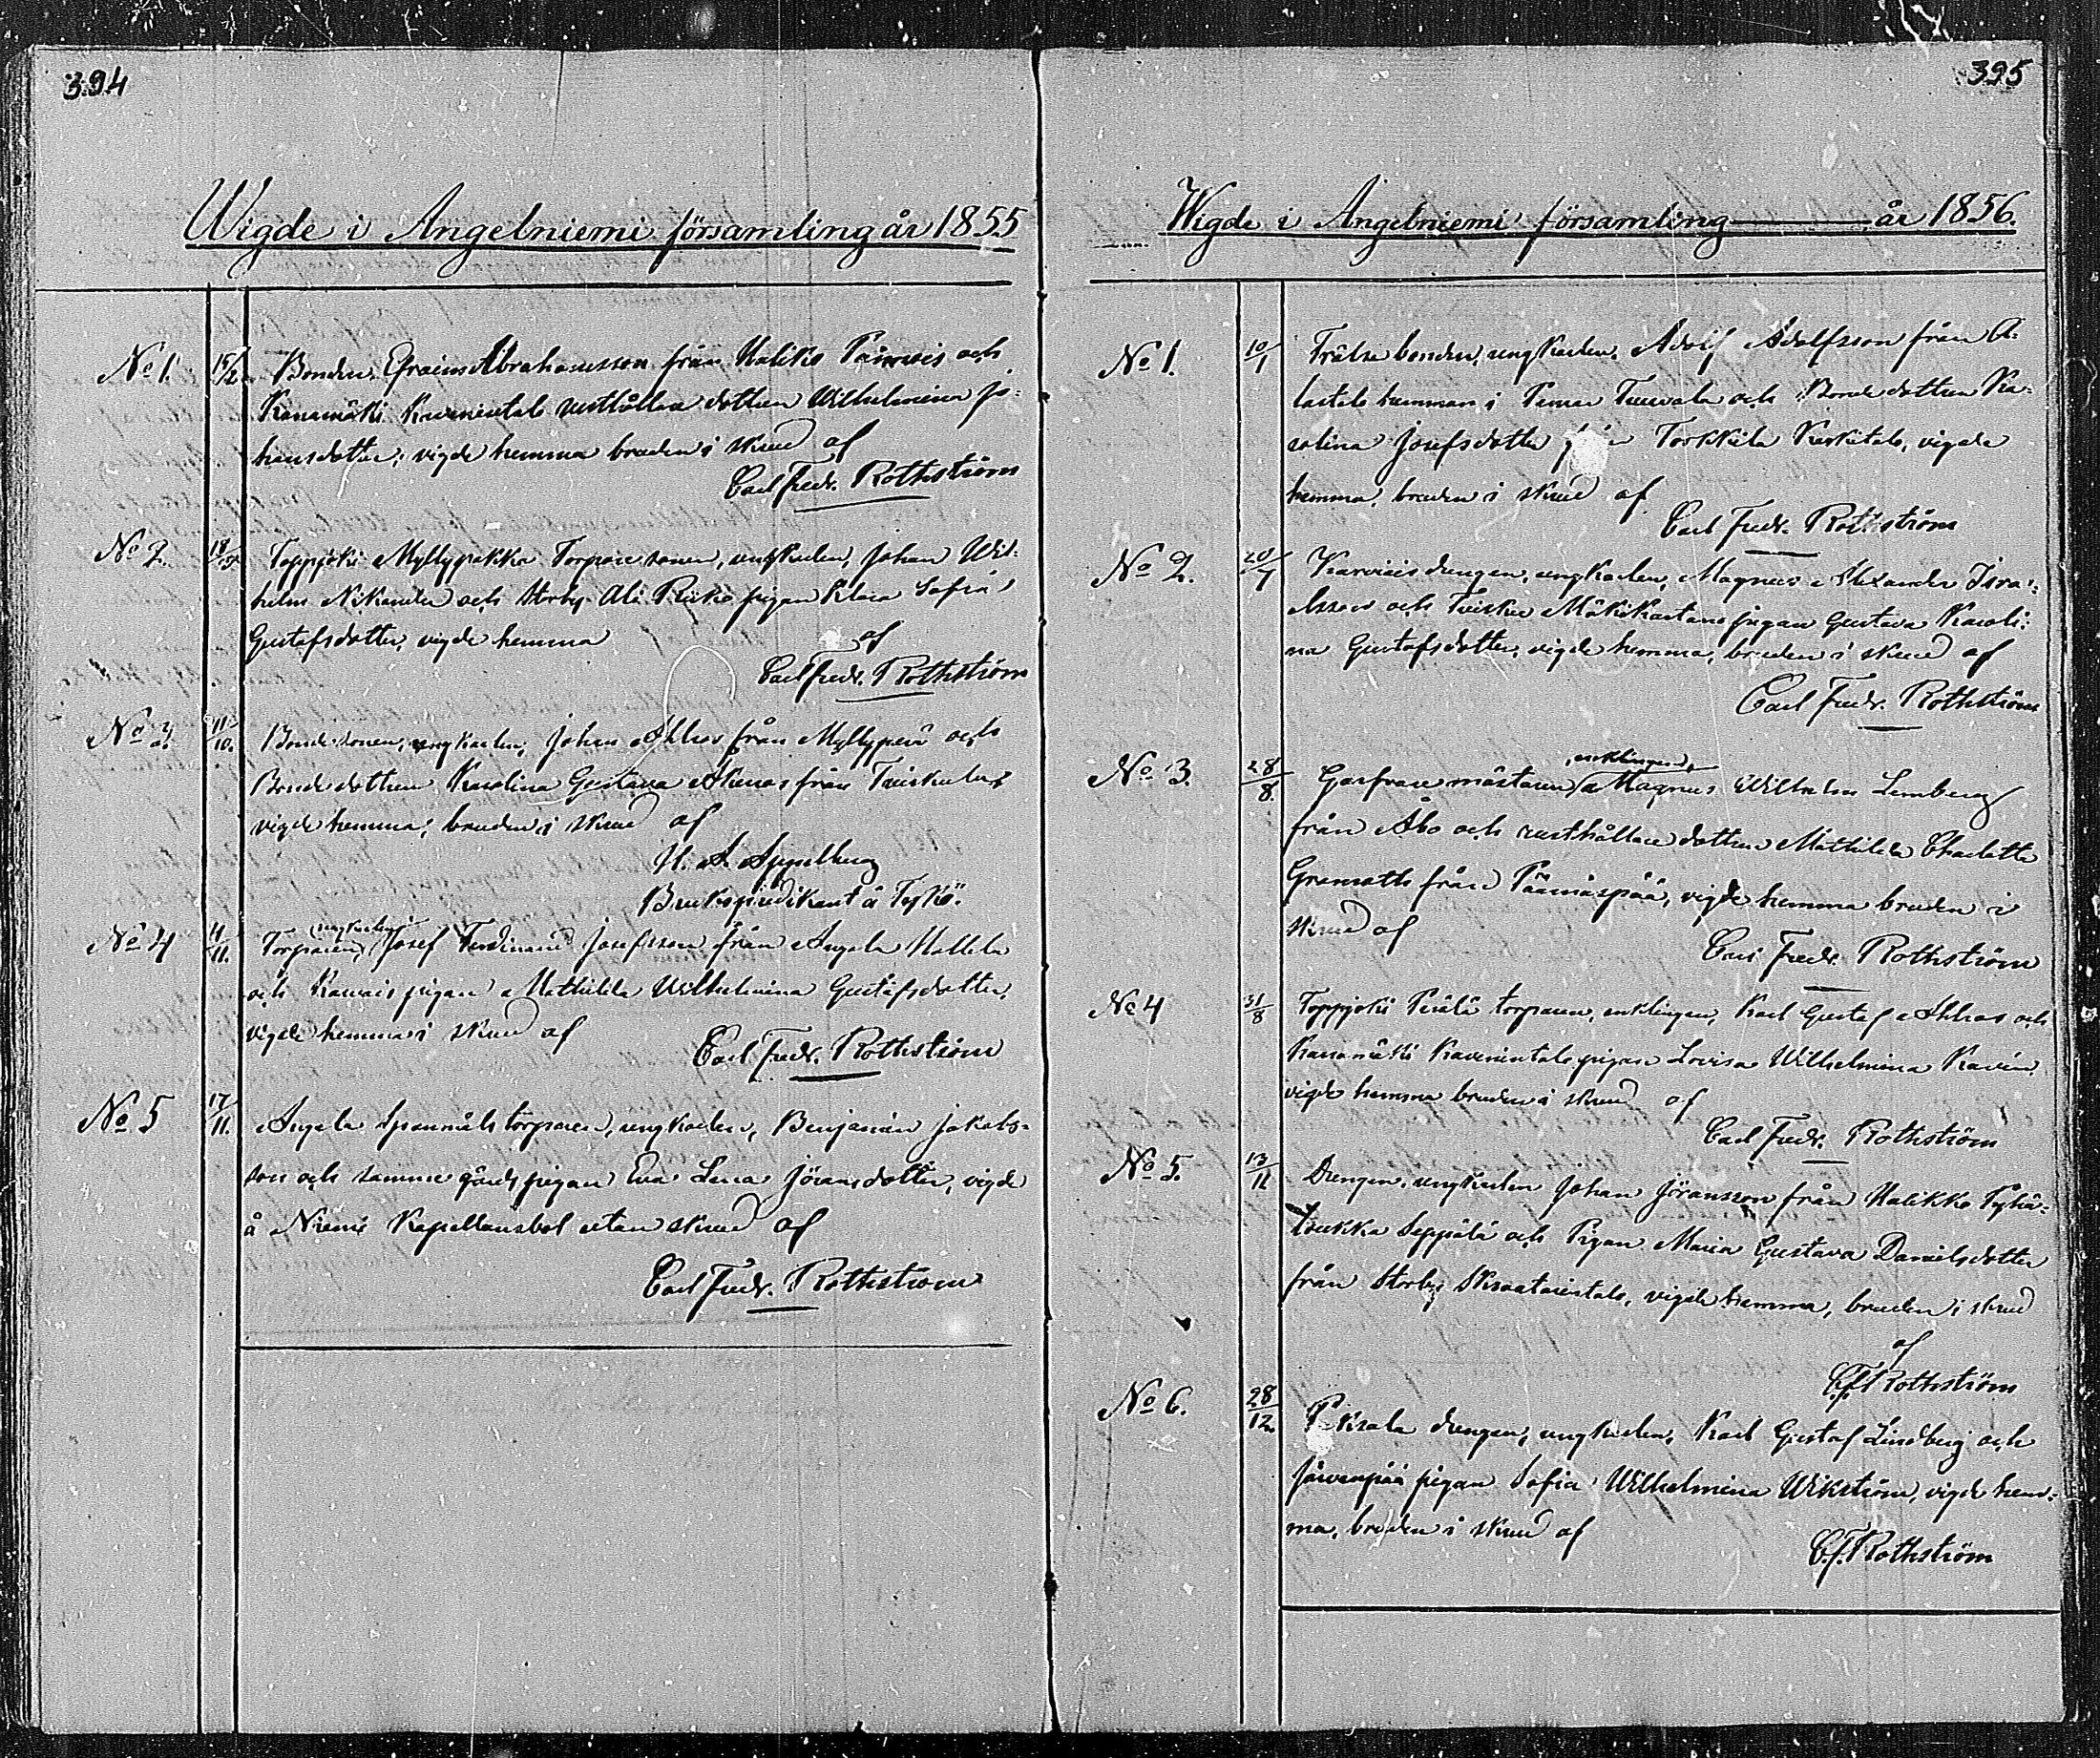 394
Wigde i Angelniemi församling år 1855
No 1. 15/2 Bonden Efraim Abrahamsson från Haliko och
Kanamäki rusthållare dottren Wilhelmina Jo-
hansdotter, vigde hemma bruden i skrud af
Carl Fredr. Rothström
No 2. 18/9 Toppjoki Myllypakka Torpare sonen, ungkarlen, Johan Wil-
helm Nikander och Storby Ali Pukio pigan Klara Sofia
Gustafsdotter, vigde hemma af
Carl Fredr. Rothström
No 3. 11/10. Bonde sonen, ungkarlen, Johan Ahlros från Myllyperä och
Bonde dottren Karolina Gustava från Tuiskula,
vigde hemma, bruden i skrud af
H. A. Spjellberg
Brukspredikant å Tykö.
No 4 11/11. Torparen, ungkarlen, Josef Ferdinand Josefsson från Angela
och Karvais pigan Mathilda Wilhelmina Gustafsdotter,
vigde hemma i skrud af
Carl Fredr. Rothström
No 5 17/11. Angela torparen, ungkarlen, Benjamin Jakobs-
son och samma gårds pigan Eva Lena Jöransdotter, vigde
å Niemi Kapellansbol utan skrud af
Carl Fredr. Rothström
395
Wigde i Angelniemi församling år 1856.
No 1. 10/1 Frälse bonden, ungkarlen, Adolf Adolfsson från A-
lastalo hemman i Pemar och Bonde dottren Ka-
rolina Josefsdotter från Torkkila Keskitalo, vigde
hemma, bruden i skrud af
Carl Fredr. Rothström
No 2. 20/7 Karviais drengen, ungkarlen, Magnus Alexander Isra-
elsson och Tuisku Mäkikartano pigan Gustava Karoli-
na Gustafsdotter, vigde hemma, bruden i skrud af
Carl Fredr. Rothström
No 3. 28/8. Garfvare mästaren, enklingen, Magnus Wilhelm Lemberg
från Åbo och rusthållare dottren Mathilda Charlotta
från Päärnäspää, vigde hemma bruden i
skrud af
Carl Fredr. Rothström
No 4 31/8 Toppjoki Perälä torparen, enklingen, Karl Gustaf Ahlros och
Kanamäki pigan Lovisa Wilhelmina
vigde hemma bruden i skrud af
Carl Fredr. Rothström
No 5. 13/11 Drengen, ungkarlen Johan Jöransson från Halikko
Seppälä och Pigan Maria Gustava Danielsdotter
från Storby, vigde hemma, bruden i skrud
af
C.f. Rothström
No 6. 28/12. drengen, ungkarlen, Karl Gustaf Lindberg och
Järvenpää pigan Sofia Wilhelmina Wikström, vigde hem-
ma, bruden i skrud af
C.f. Rothström